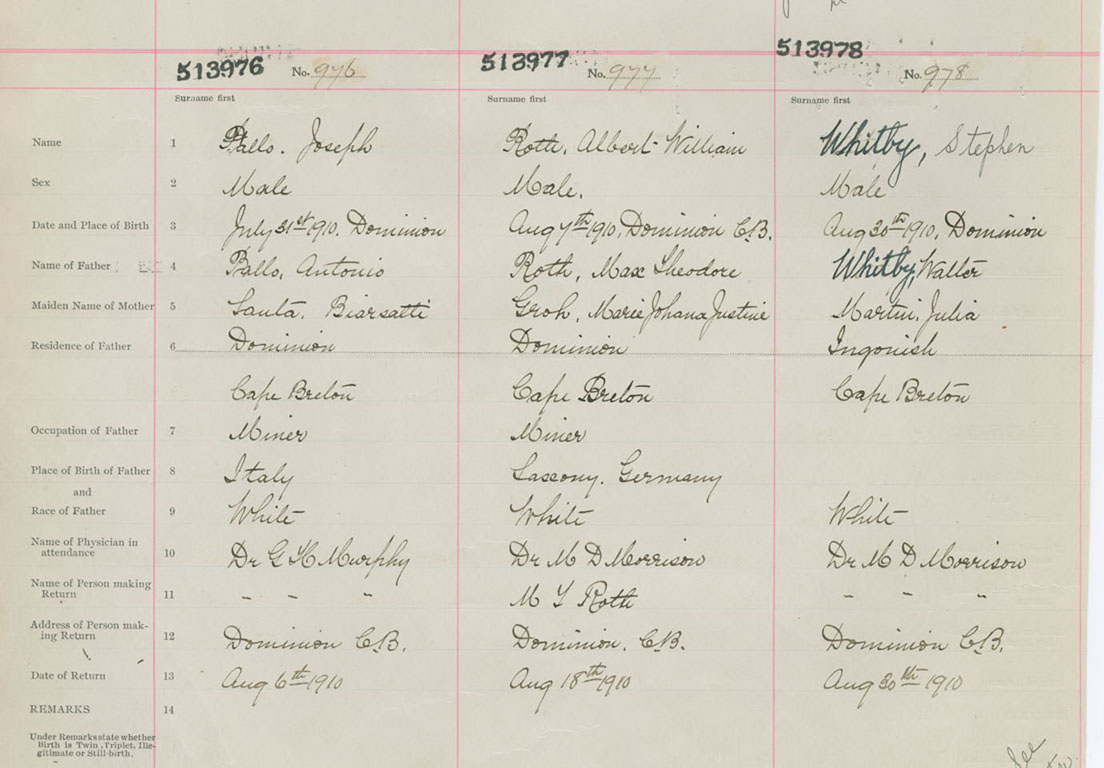 513976 No. 976 513977 No. 977 513978 No. 978
Surname first Surname first Surname first
Name 1 Pallo. Joseph Roth, Albert William Whitby, Stephen
Sex 2 Male Male. Male
Date and Place of Birth 3 July 31st 1910. Dominion Aug 7th 1910, Dominion C.B. Aug 30th 1910, Dominion
Name of Father 4 Pallo, Antonio Roth, Max Theodore Whitby, Walter
Maiden Name of Mother 5 Santa. Biarsatti Groh, Marie Johana Justine Martin, Julia
Residence of Father 6 Dominion Dominion Ingonish
Cape Breton Cape Breton Cape Breton
Occupation of Father 7 Miner Miner
Place of Birth of Father 8 Italy Saxony. Germany
and
Race of Father 9 White White White
Name of Physician in
attendance 10 Dr G H Murphy Dr M D Morrison Dr M D Morrison
Name of Person making
Return 11 - - " M T Roth - - "
Address of Person mak-
ing Return 12 Dominion C.B. Dominion. C.B. Dominion C.B.
Date of Return 13 Aug 6th 1910 Aug 18th 1910 Aug 30th 1910
REMARKS 14
Under Remarks state whether
Birth is Twin, Triplet, Ille-
gitimate or Still-birth.
See